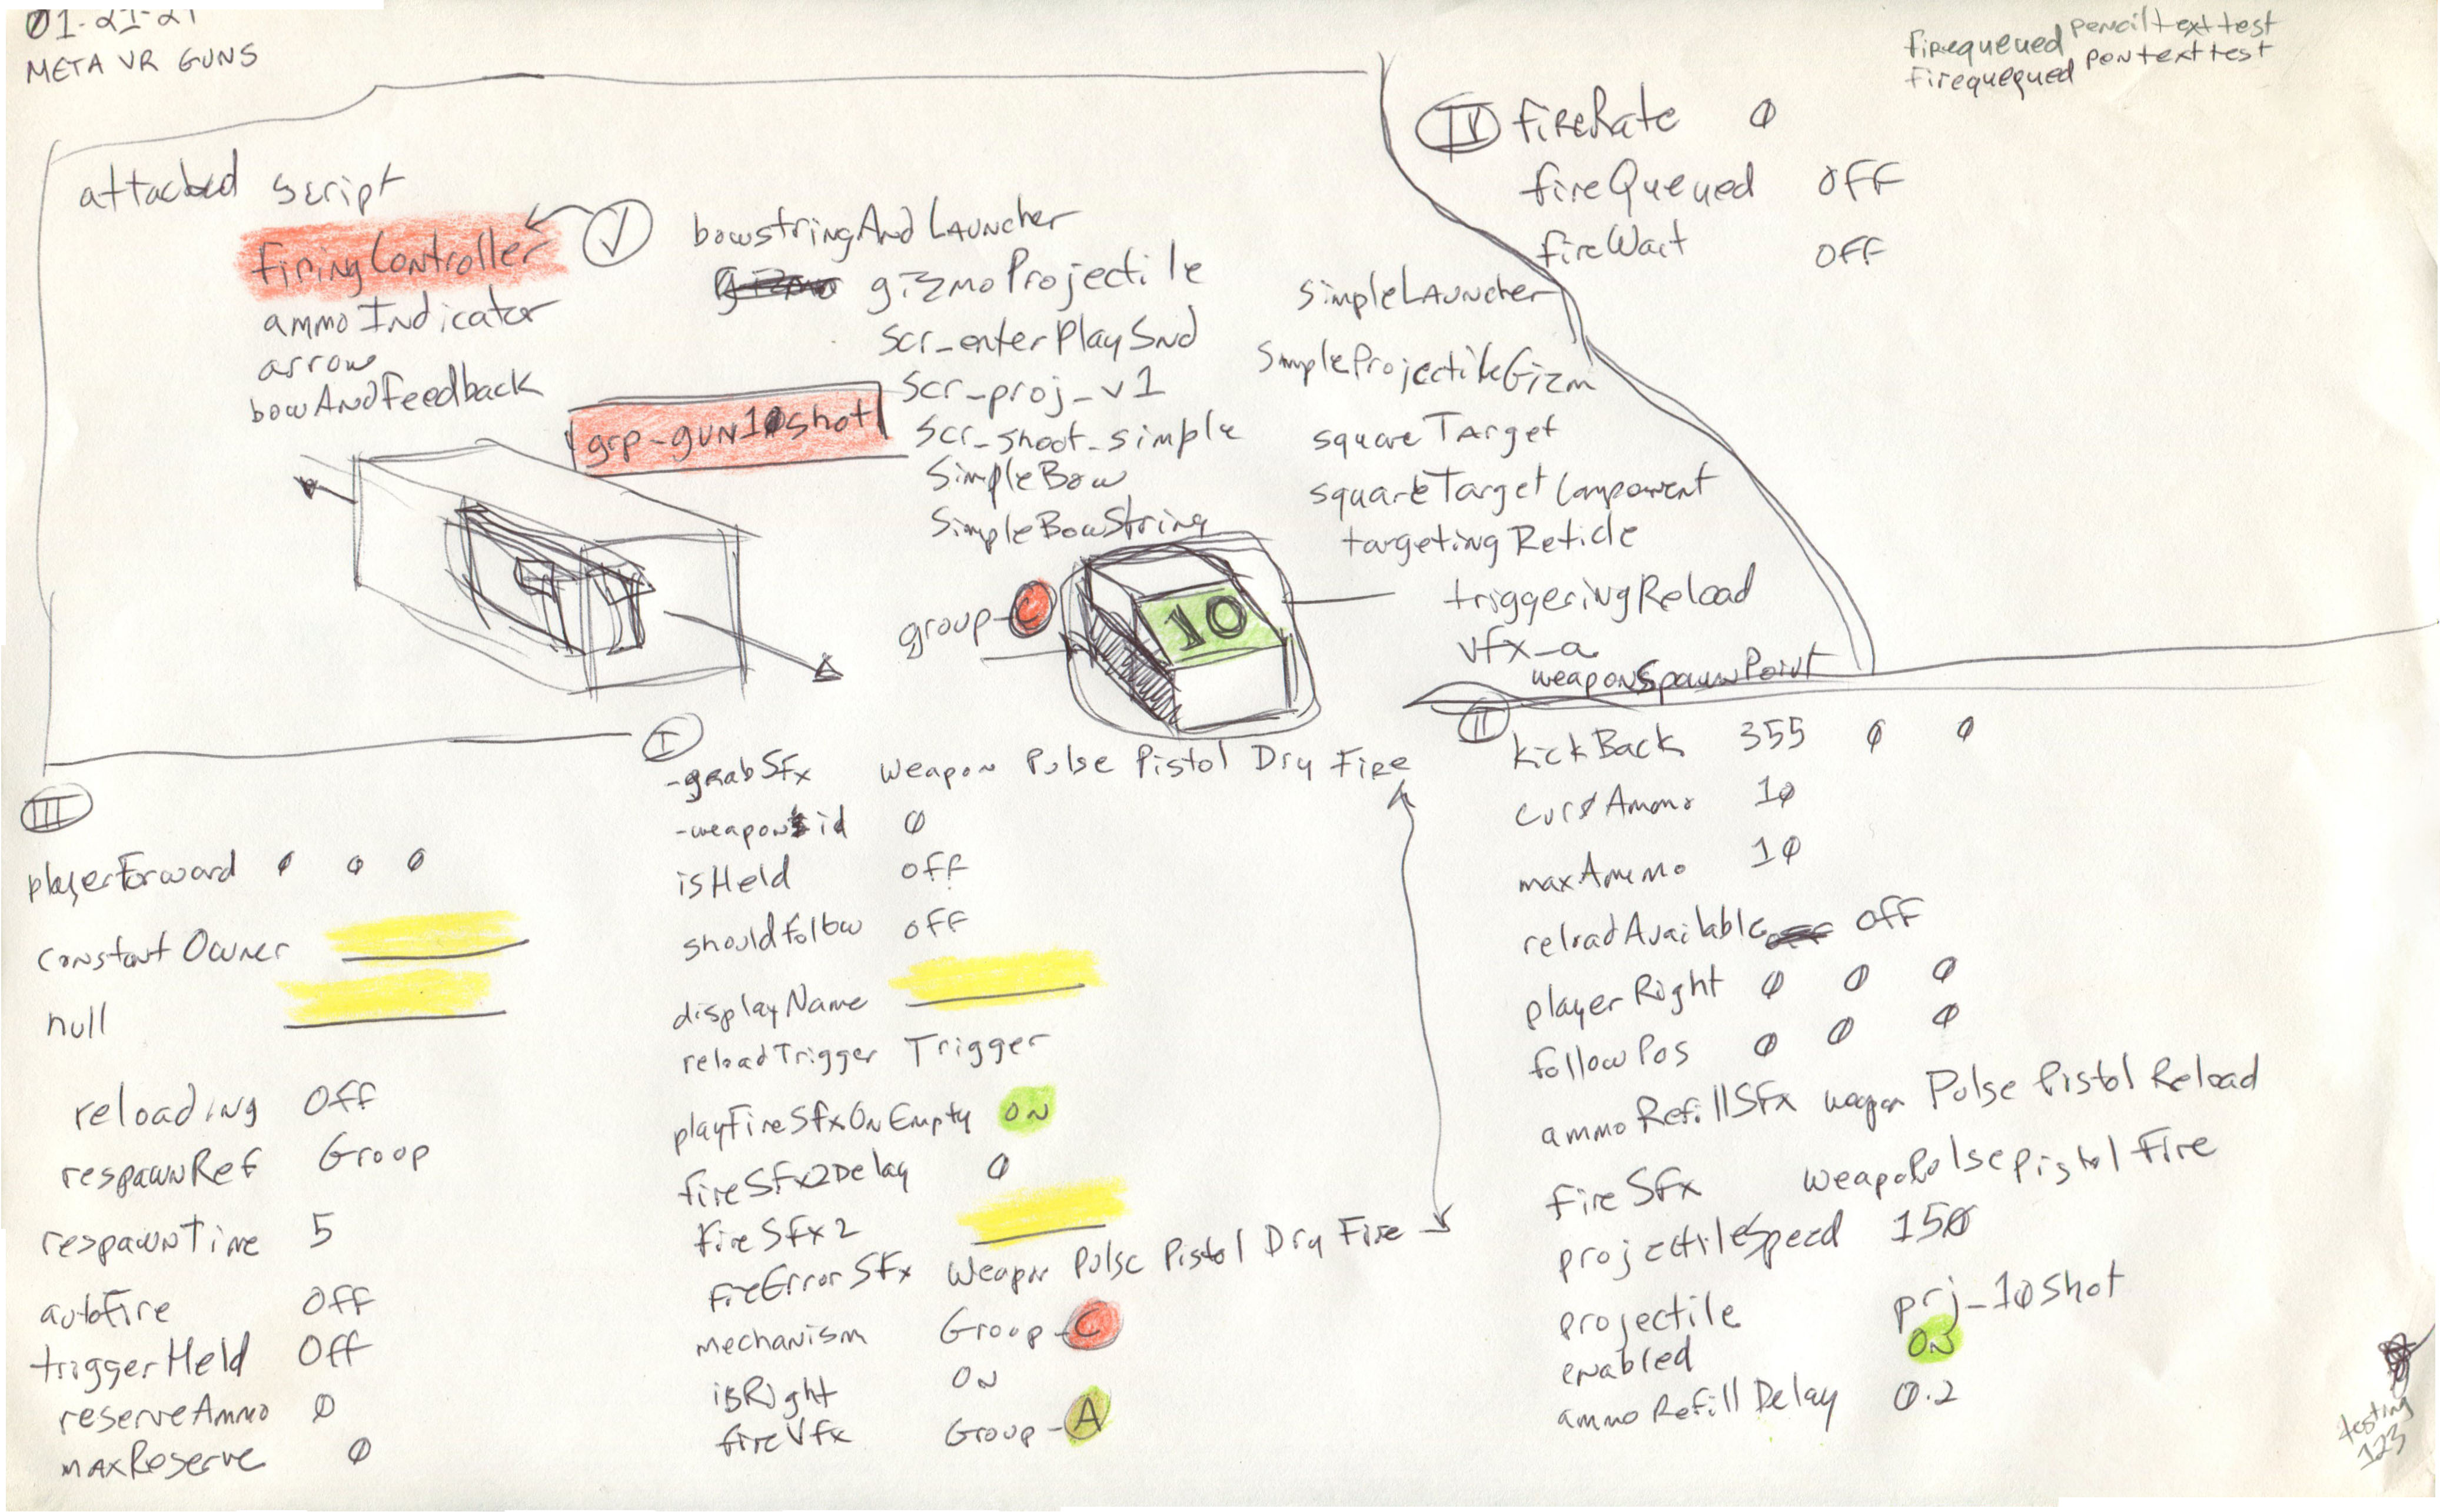 META VR GUNS
firequeued pencil text test
firequequed pen text test
attached script
firingController
ammoIndicator
arrow
bowAndFeedback
bowstringAndLauncher
gizmo gizmoProjectile
scr_enterPlaySnd
scr_proj_v1
scr_shoot_simple
SimpleBow
SimpleBowString
grp-gun10shot
group-C
10
simpleLauncher
SimpleProjectileGizm
squareTarget
squareTargetComponent
targetingReticle
triggeringReload
vfx_a
weaponSpawnPoint
IV fireRate 0
fireQueued off
fireWait off
I
-grabSfx Weapon Pulse Pistol Dry Fire
-weaponid 0
isHeld off
shouldFollow off
displayName
reloadTrigger Trigger
playFireSfxOnEmpty ON
fireSfx2Delay 0
fireSfx2
fireErrorSfx Weapon Pulse Pistol Dry Fire
mechanism Group-C
isRight ON
fireVfx Group-A
II
kickBack 355 0 0
currAmmo 10
maxAmmo 10
reloadAvailable off
playerRight 0 0 0
followPos 0 0 0
ammoRefillSfx weapon Pulse Pistol Reload
fireSfx WeaponPulsepistol Fire
projectileSpeed 150
projectile prj_10shot
enabled ON
ammoRefillDelay 0.2
III
playerForward 0 0 0
constantOwner
null
reloading Off
respawnRef Group
respawnTime 5
autoFire Off
triggerHeld Off
reserveAmmo 0
maxReserve 0
testing
123